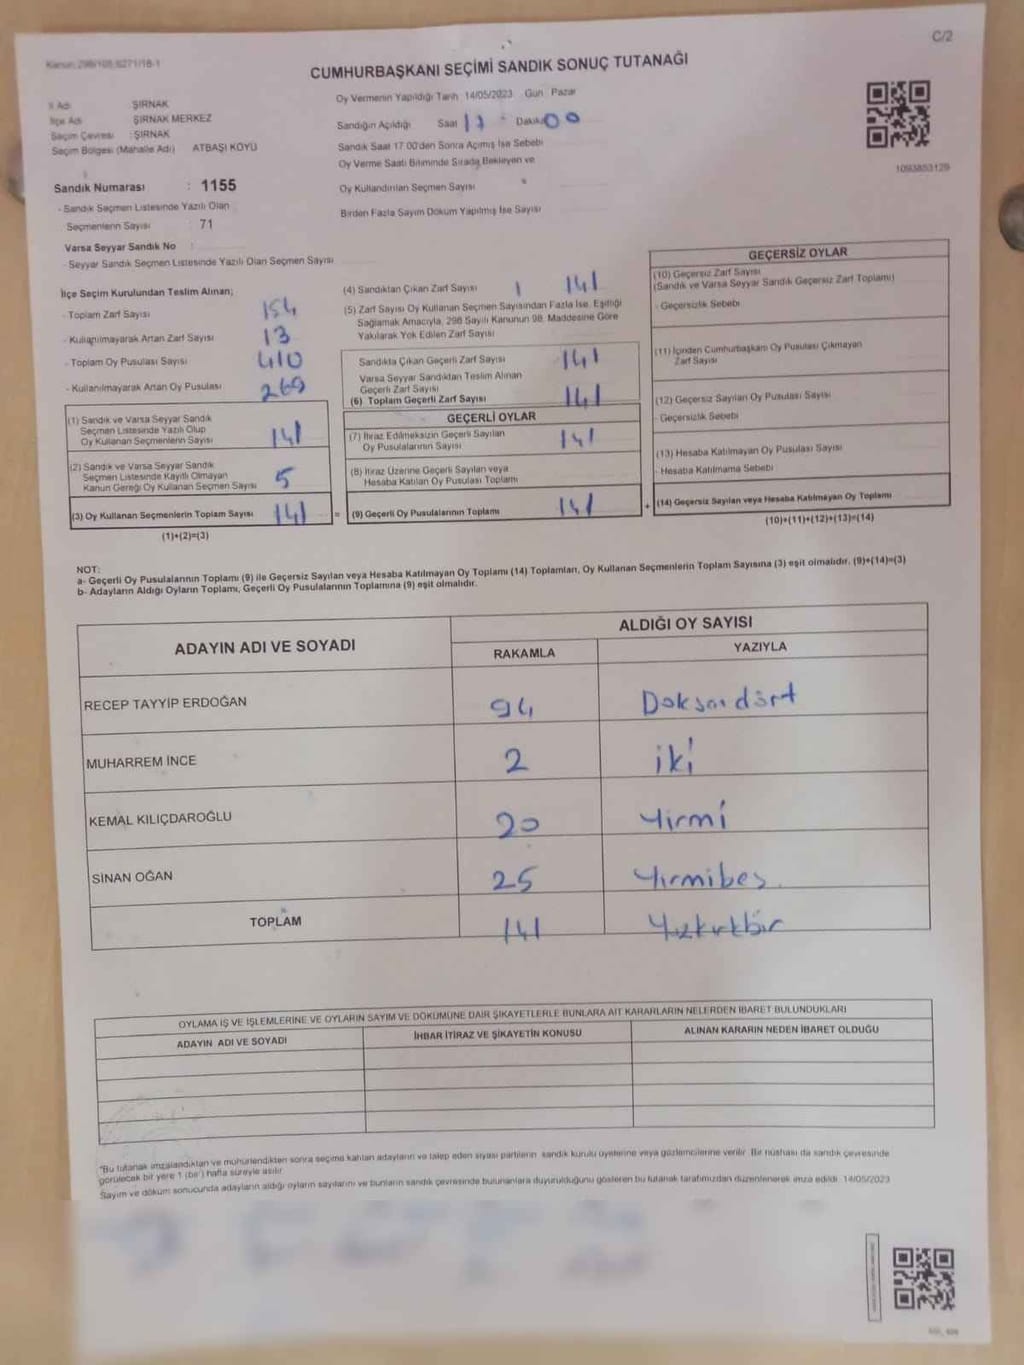 C/2
Kanun: 298/105,6271/18-1
CUMHURBAŞKANI SEÇİMİ SANDIK SONUÇ TUTANAĞI
İl Adı ŞIRNAK
İlçe Adı ŞIRNAK MERKEZ
Seçim Çevresi : ŞIRNAK
Seçim Bölgesi (Mahalle Adı) ATBAŞI KÖYÜ
Oy Vermenin Yapıldığı Tarih 14/05/2023 Gün Pazar
Sandığın Açıldığı Saat 17 Dakika 00
Sandık Saat 17.00'den Sonra Açılmış İse Sebebi
Oy Verme Saati Bitiminde Sırada Bekleyen ve
Oy Kullandırılan Seçmen Sayısı
Birden Fazla Sayım Döküm Yapılmış İse Sayısı
1093853129
Sandık Numarası : 1155
- Sandık Seçmen Listesinde Yazılı Olan
Seçmenlerin Sayısı 71
Varsa Seyyar Sandık No :
- Seyyar Sandık Seçmen Listesinde Yazılı Olan Seçmen Sayısı
İlçe Seçim Kurulundan Teslim Alınan;
- Toplam Zarf Sayısı 154
- Kullanılmayarak Artan Zarf Sayısı 13
- Toplam Oy Pusulası Sayısı 410
- Kullanılmayarak Artan Oy Pusulası 269
(1) Sandık ve Varsa Seyyar Sandık
Seçmen Listesinde Yazılı Olup
Oy Kullanan Seçmenlerin Sayısı 141
(2) Sandık ve Varsa Seyyar Sandık
Seçmen Listesinde Kayıtlı Olmayan
Kanun Gereği Oy Kullanan Seçmen Sayısı 5
(3) Oy Kullanan Seçmenlerin Toplam Sayısı 141 =
(1)+(2)=(3)
(4) Sandıktan Çıkan Zarf Sayısı 141
(5) Zarf Sayısı Oy Kullanan Seçmen Sayısından Fazla İse, Eşitliği
Sağlamak Amacıyla, 298 Sayılı Kanunun 98. Maddesine Göre
Yakılarak Yok Edilen Zarf Sayısı
Sandıkta Çıkan Geçerli Zarf Sayısı 141
Varsa Seyyar Sandıktan Teslim Alınan
Geçerli Zarf Sayısı
(6) Toplam Geçerli Zarf Sayısı 141
GEÇERLİ OYLAR
(7) İtiraz Edilmeksizin Geçerli Sayılan
Oy Pusulalarının Sayısı 141
(8) İtiraz Üzerine Geçerli Sayılan veya
Hesaba Katılan Oy Pusulası Toplamı
(9) Geçerli Oy Pusulalarının Toplamı 141 +
GEÇERSİZ OYLAR
(10) Geçersiz Zarf Sayısı
(Sandık ve Varsa Seyyar Sandık Geçersiz Zarf Toplamı)
- Geçersizlik Sebebi
(11) İçinden Cumhurbaşkanı Oy Pusulası Çıkmayan
Zarf Sayısı
(12) Geçersiz Sayılan Oy Pusulası Sayısı
- Geçersizlik Sebebi
(13) Hesaba Katılmayan Oy Pusulası Sayısı
- Hesaba Katılmama Sebebi
(14) Geçersiz Sayılan veya Hesaba Katılmayan Oy Toplamı
(10)+(11)+(12)+(13)=(14)
NOT:
a- Geçerli Oy Pusulalarının Toplamı (9) ile Geçersiz Sayılan veya Hesaba Katılmayan Oy Toplamı (14) Toplamları, Oy Kullanan Seçmenlerin Toplam Sayısına (3) eşit olmalıdır. (9)+(14)=(3)
b- Adayların Aldığı Oyların Toplamı, Geçerli Oy Pusulalarının Toplamına (9) eşit olmalıdır.
ADAYIN ADI VE SOYADI
ALDIĞI OY SAYISI
RAKAMLA YAZIYLA
RECEP TAYYİP ERDOĞAN 94 Doksandört
MUHARREM İNCE 2 iki
KEMAL KILIÇDAROĞLU 20 Yirmi
SİNAN OĞAN 25 Yirmibeş
TOPLAM 141 Yüzkırkbir
OYLAMA İŞ VE İŞLEMLERİNE VE OYLARIN SAYIM VE DÖKÜMÜNE DAİR ŞİKAYETLERLE BUNLARA AİT KARARLARIN NELERDEN İBARET BULUNDUKLARI
ADAYIN ADI VE SOYADI İHBAR İTİRAZ VE ŞİKAYETİN KONUSU ALINAN KARARIN NEDEN İBARET OLDUĞU
"Bu tutanak imzalandıktan ve mühürlendikten sonra seçime katılan adayların ve talep eden siyasi partilerin sandık kurulu üyelerine veya gözlemcilerine verilir. Bir nüshası da sandık çevresinde
görülecek bir yere 1 (bir) hafta süreyle asılır.
Sayım ve döküm sonucunda adayların aldığı oyların sayılarını ve bunların sandık çevresinde bulunanlara duyurulduğunu gösteren bu tutanak tarafımızdan düzenlenerek imza edildi. 14/05/2023